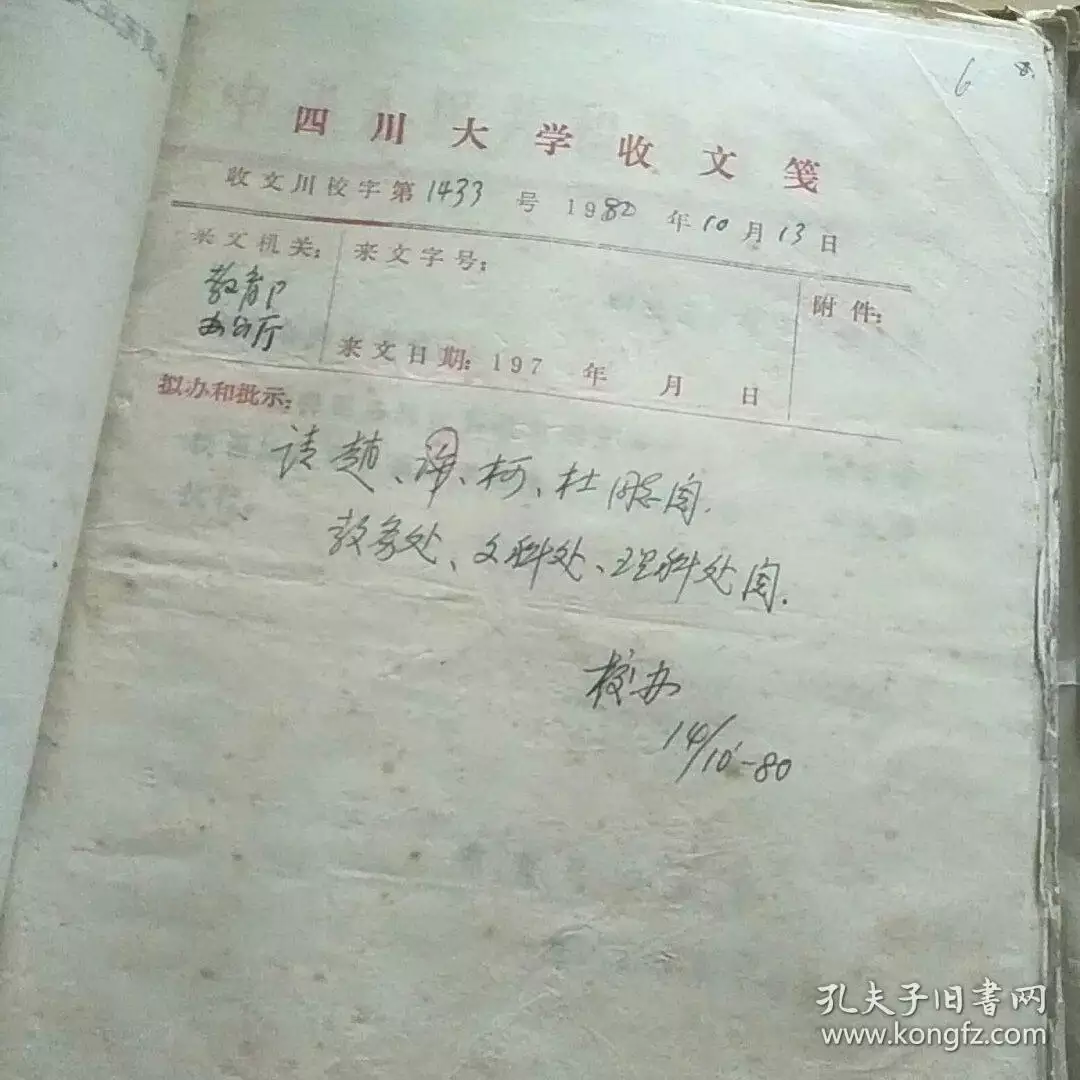 6 8.
四川大学收文笺
收文川校字第1433号 1980年10月13日
来文机关: 来文字号: 附件:
教育部
办公厅
来文日期: 197 年 月 日
拟办和批示:
请赵、许、柯、杜 阅.
教务处、文科处、理科处阅.
校办
14/10-80
孔夫子旧书网
www.kongfz.com